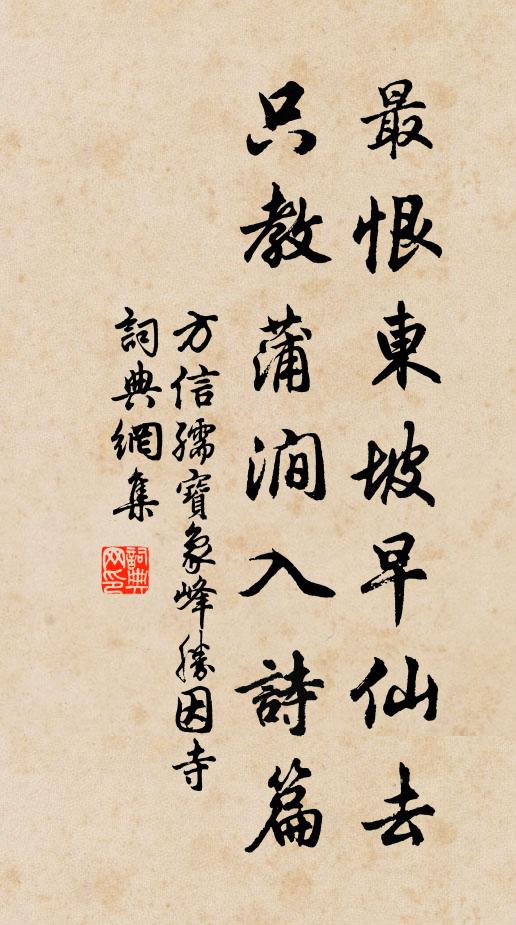 最恨東坡早仙去
只教蒲澗入詩篇
方信孺寶象峰勝因寺
詞典網集
詞典网印